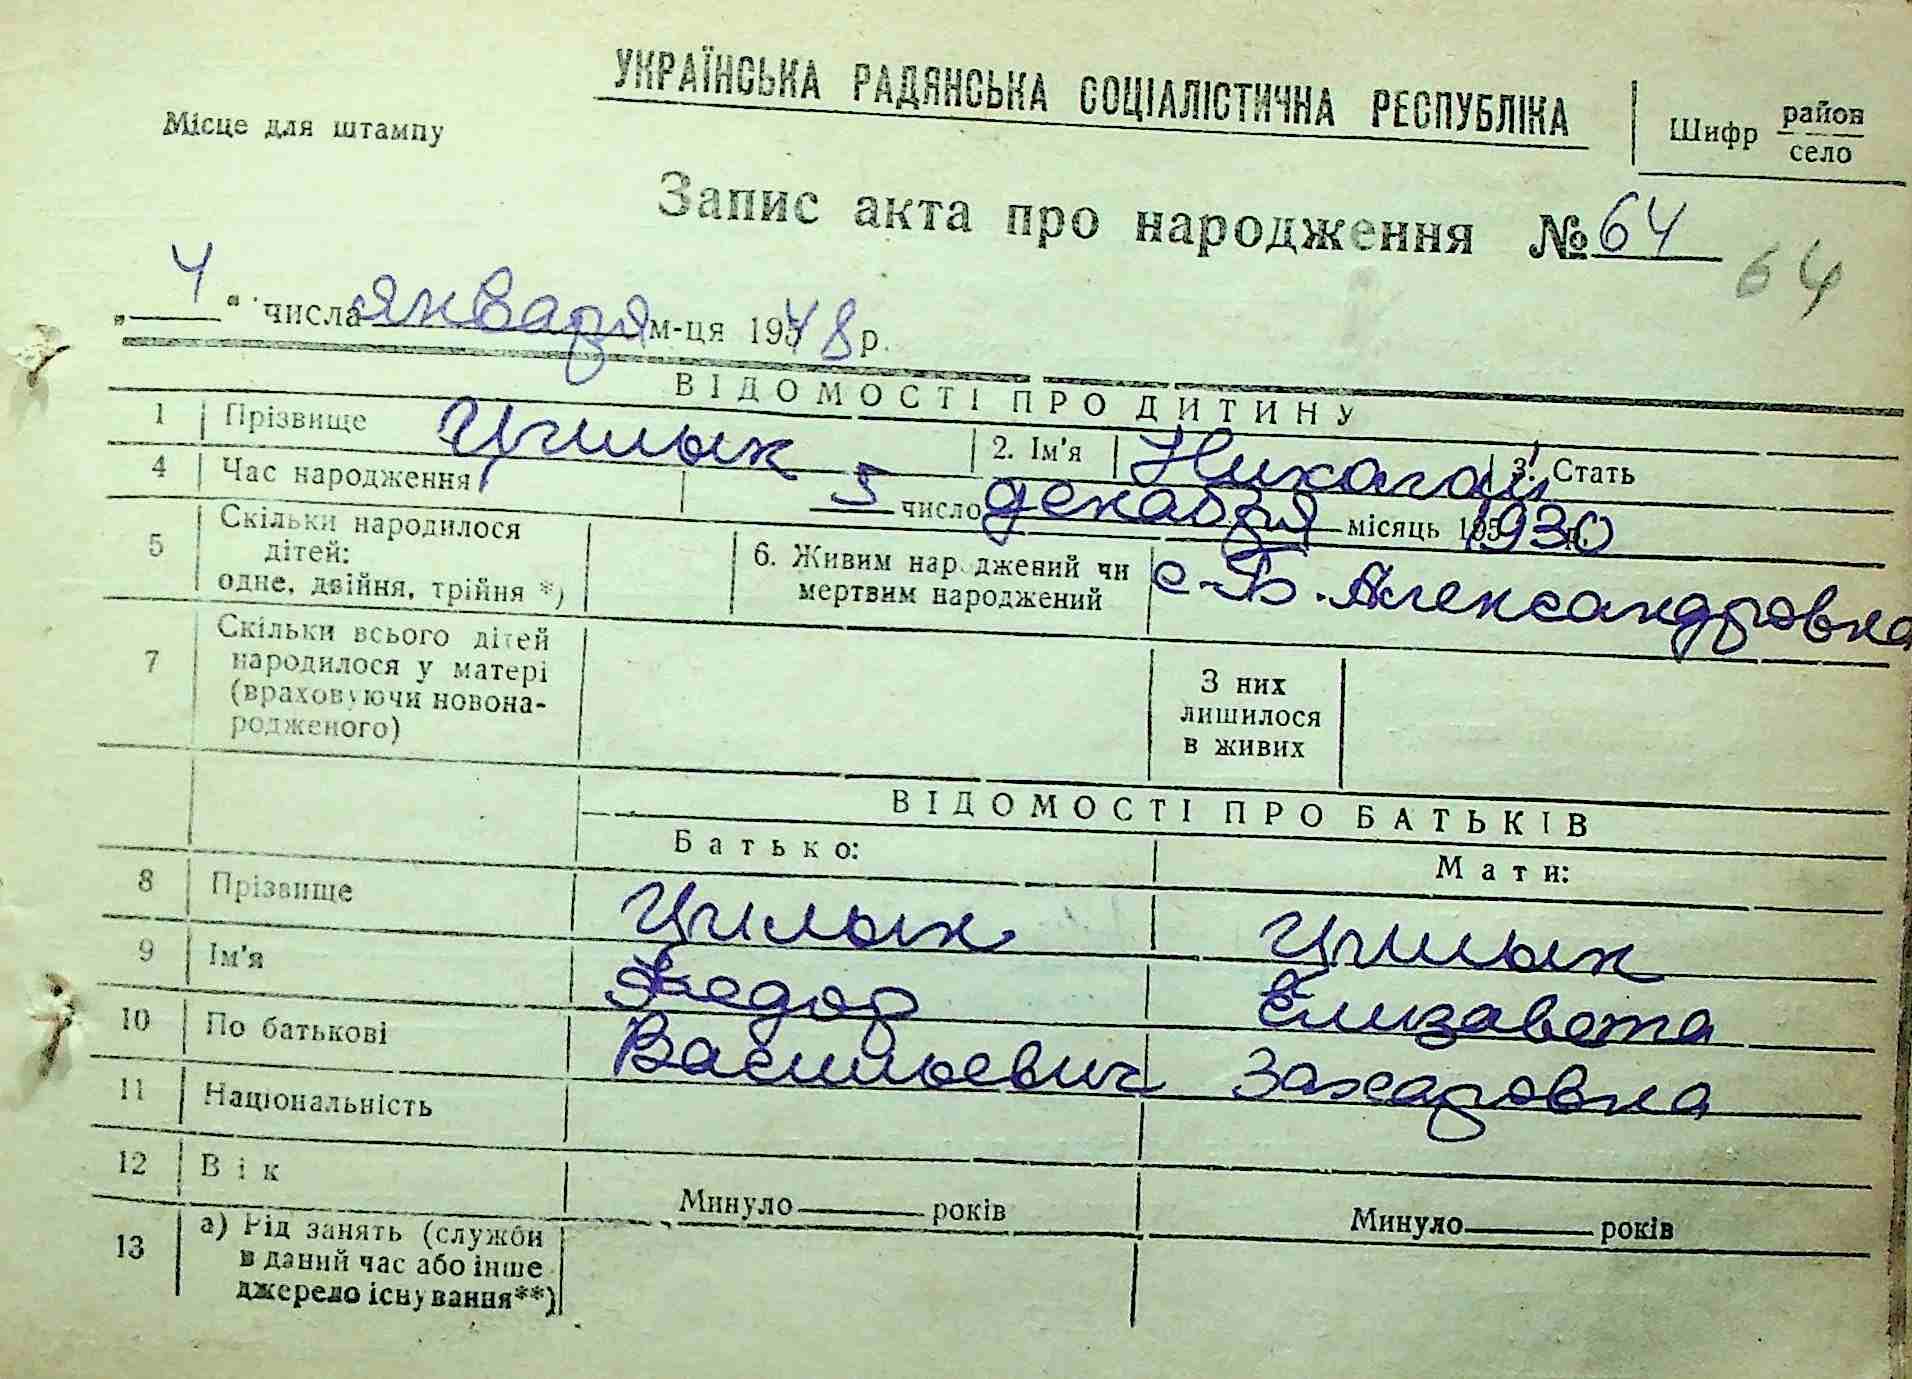 УКРАЇНСЬКА РАДЯНСЬКА СОЦІАЛІСТИЧНА РЕСПУБЛІКА
Місце для штампу
Шифр район
село
Запис акта про народження № 64
64
„ 4 “ числа января м-ця 1948 р.
ВІДОМОСТІ ПРО ДИТИНУ
1 Прізвище Цилык 2. Ім'я Николай 3. Стать
4 Час народження 5 число декабря місяць 1930 р.
5 Скільки народилося дітей: одне, двійня, трійня *) 6. Живим народжений чи мертвим народжений с-Б. Александровка
7 Скільки всього дітей народилося у матері (враховуючи новонародженого) З них лишилося в живих
ВІДОМОСТІ ПРО БАТЬКІВ
Батько: Мати:
8 Прізвище Цилык Цилык
9 Ім'я Федор Елизавета
10 По батькові Васильевич Захаровна
11 Національність
12 Вік Минуло років Минуло років
13 а) Рід занять (служби
в даний час або інше
джерело існування**)